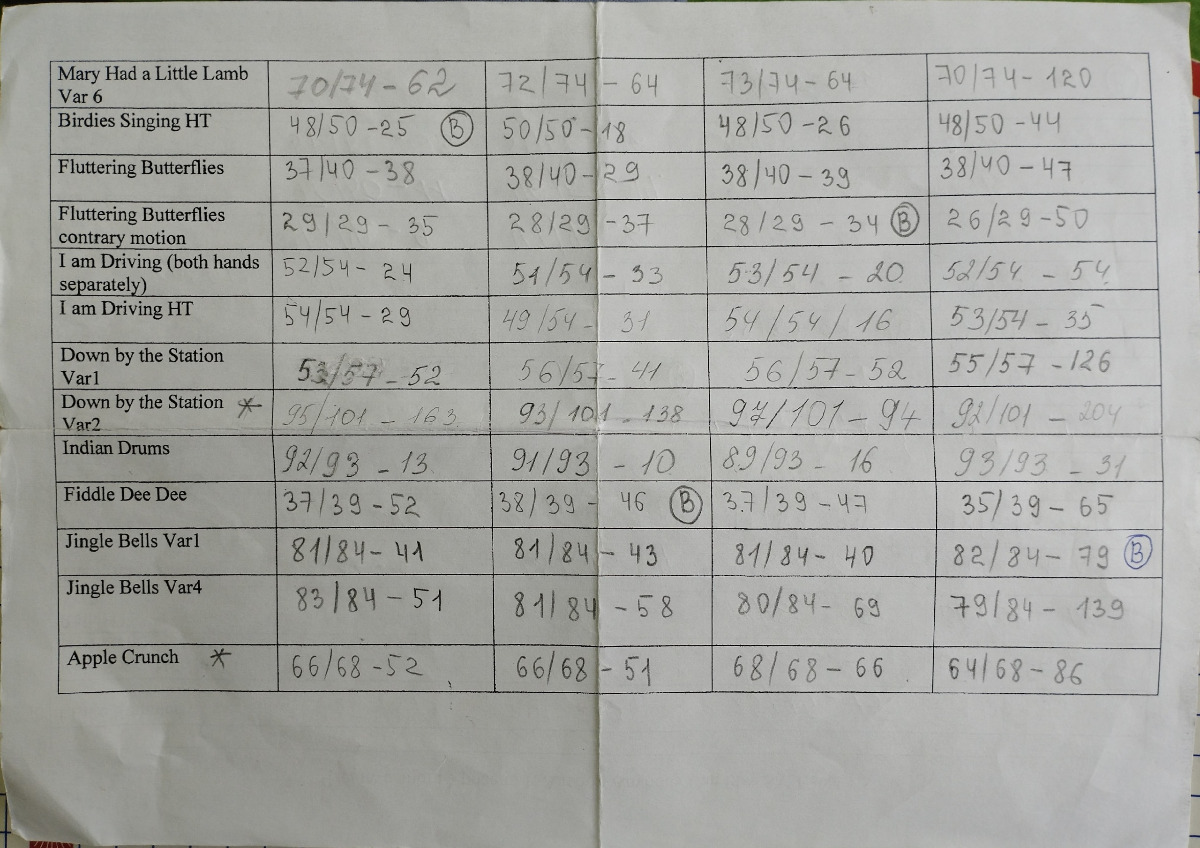 Mary Had a Little Lamb 70/74 - 62 72/74 - 64 73/74 - 64 70/74 - 120
Var 6
Birdies Singing HT 48/50 - 25 B 50/50 - 18 48/50 - 26 48/50 - 44
Fluttering Butterflies 37/40 - 38 38/40 - 29 38/40 - 39 38/40 - 47
Fluttering Butterflies 29/29 - 35 28/29 - 37 28/29 - 34 B 26/29 - 50
contrary motion
I am Driving (both hands 52/54 - 24 51/54 - 33 53/54 - 20 52/54 - 54
separately)
I am Driving HT 54/54 - 29 49/54 - 31 54/54/16 53/54 - 35
Down by the Station 53/57 - 52 56/57 - 41 56/57 - 52 55/57 - 126
Var1
Down by the Station * 95/101 - 163 93/101 - 138 97/101 - 94 92/101 - 204
Var2
Indian Drums 92/93 - 13 91/93 - 10 89/93 - 16 93/93 - 31
Fiddle Dee Dee 37/39 - 52 38/39 - 46 B 37/39 - 47 35/39 - 65
Jingle Bells Var1 81/84 - 41 81/84 - 43 81/84 - 40 82/84 - 79 B
Jingle Bells Var4 83/84 - 51 81/84 - 58 80/84 - 69 79/84 - 139
Apple Crunch * 66/68 - 52 66/68 - 51 68/68 - 66 64/68 - 86